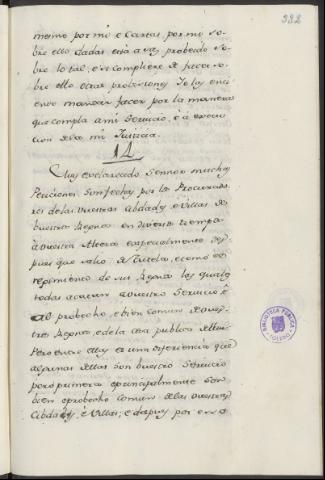 332
mesmo por mi e Cartas por mi so-
bre ello dadas está assaz probeido so-
bre lo tal, é si cumpliere de facer so-
bre ello otras probisiones Yo lo enti-
endo mandar facer por la manera
que compla a mi Servicio, é á execu-
cion de la mi Justicia.
14
Muy esclarescido Sennor muchas
Peticiones son fechas por los Procurado-
res de las vuestras Cibdades é Villas de
buestros Regnos en diversos tiempos
á vuestra Alteza especialmente des-
pues que salio de Tutela, e tomó el
regimiento de sus Regnos las quales
todas acatan a vuestro Servicio é
al probecho, e bien comun de vues-
tros Regnos, e de la cosa publica dellos
Pero entre ellas es una diferencia que
algunas dellas son buestro Servicio
pero primera e principalmente son
bien e probecho comun de las vuestras
Cibdades, é Villas; e depues por ende
BIBLIOTECA PUBLICA
TOLEDO